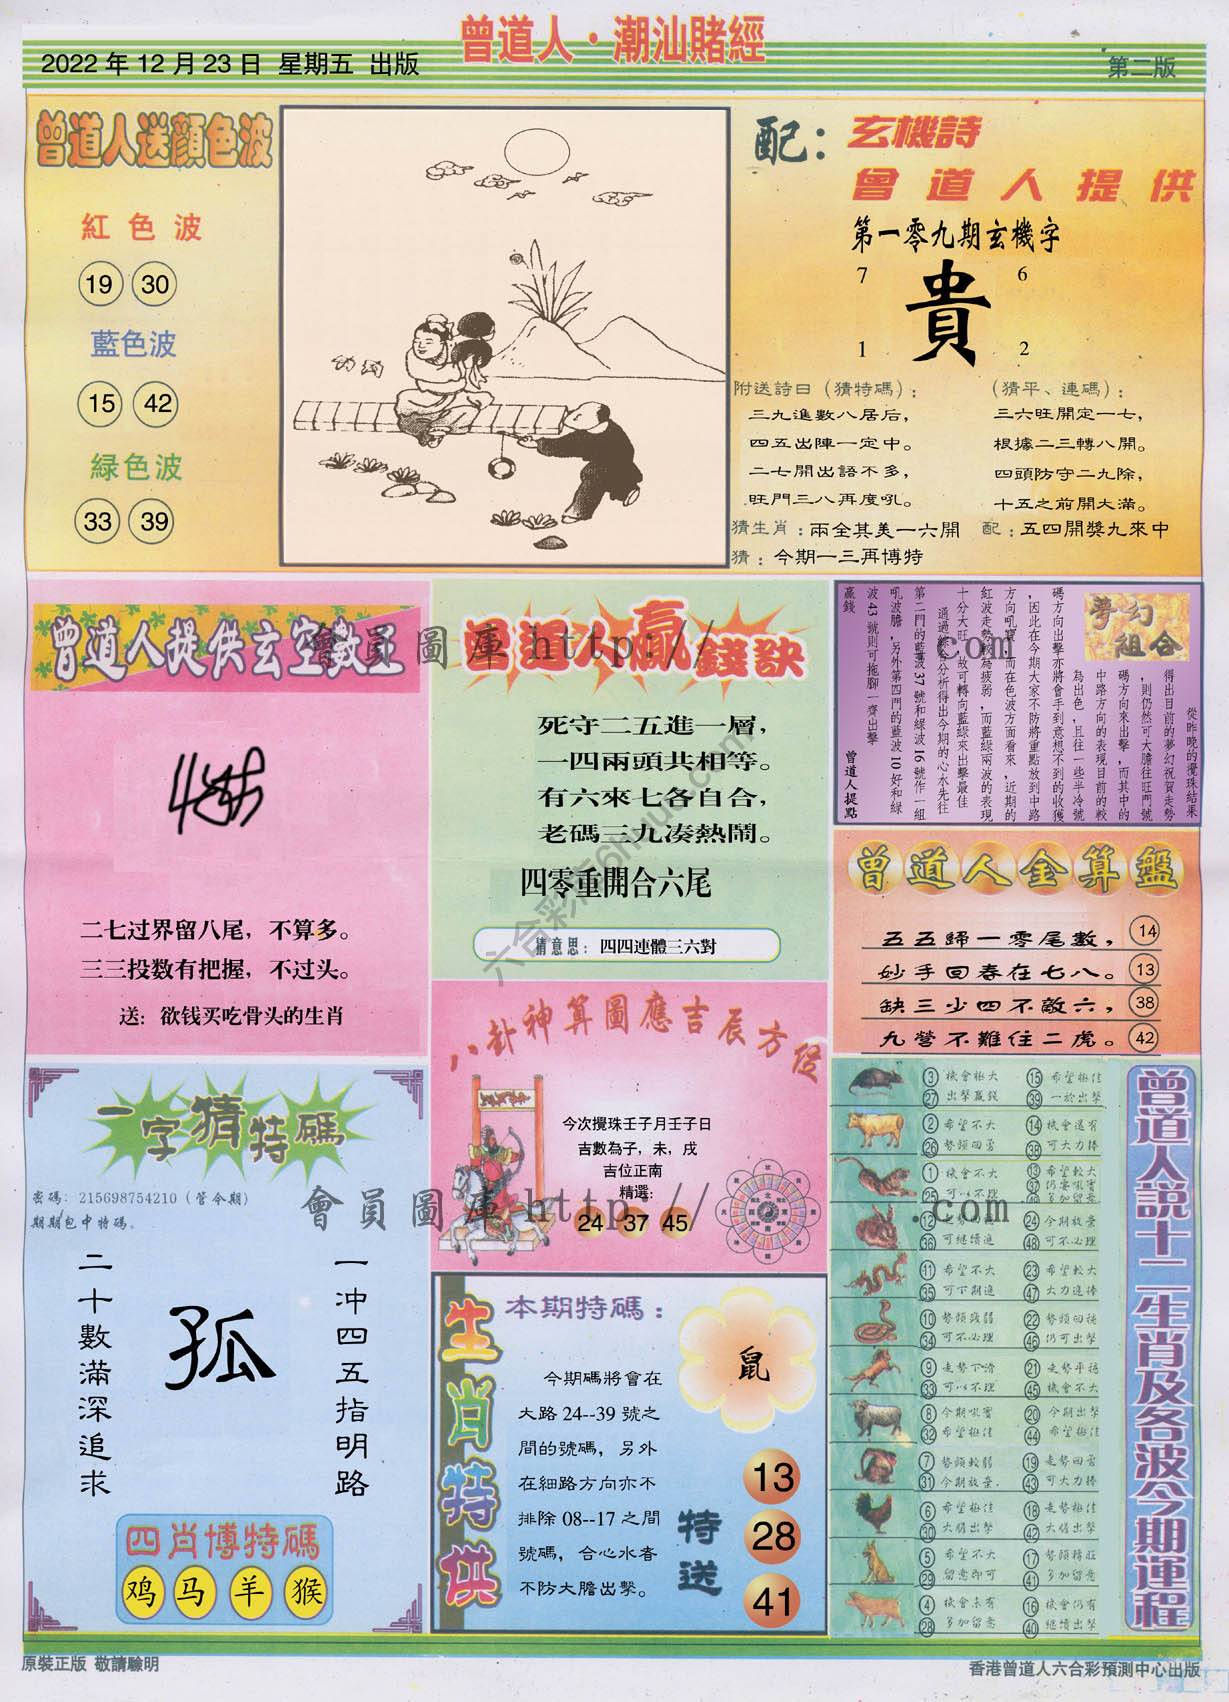 曾道人·潮汕賭經
2022 年 12 月 23 日 星期五 出版
第二版
曾道人送顏色波
紅色波
19 30
藍色波
15 42
綠色波
33 39
配：玄機詩
曾道人提供
第一零九期玄機字
7 6
貴
1 2
附送詩曰（猜特碼）：
三九進數八居后，
四五出陣一定中。
二七開出語不多，
旺門三八再度吼。
（猜平、連碼）：
三六旺開定一七，
根據二三轉八開。
四頭防守二九除，
十五之前開大滿。
猜生肖：兩全其美一六開 配：五四開獎九來中
猜：今期一三再博特
曾道人提供玄空數王
二七过界留八尾，不算多。
三三投数有把握，不过头。
送：欲钱买吃骨头的生肖
曾道人贏錢訣
死守二五進一層，
一四兩頭共相等。
有六來七各自合，
老碼三九凑熱鬧。
四零重開合六尾
猜意思：四四連體三六對
夢幻
組合
從昨晚的攪珠結果
得出目前的夢幻祝賀走勢
，則仍然可大膽往旺門號
碼方向來出擊，而其中的
中路方向的表現目前的較
為出色，且往一些半冷號
碼方向出擊亦將會手到意想不到的收獲
，因此在今期大家不防將重點放到中路
方向吼寶，而在色波方面看來，近期的
紅波走勢較為疲弱，而藍綠兩波的表現
十分大旺，故可轉向藍綠來出擊最佳
通過綜合分析得出今期的心水先往
第二門的藍波 37 號和綠波 16 號作一組
吼波膽，另外第四門的藍波 10 好和綠
波 43 號則可拖腳一齊出擊
贏錢
曾道人提點
曾道人金算盤
五五歸一零尾數， 14
妙手回春在七八。 13
缺三少四不敵六， 38
九營不難住二虎。 42
八卦神算圖應吉辰方位
今次攪珠壬子月壬子日
吉數為子，未，戌
吉位正南
精選：
24 37 45
一字猜特碼
密碼：215698754210（管今期）
期期包中特碼。
一冲四五指明路
孤
二十數滿深追求
四肖博特碼
鸡 马 羊 猴
生肖特供
本期特碼：
鼠
今期碼將會在
大路 24--39 號之
間的號碼，另外
在細路方向亦不
排除 08--17 之間
號碼，合心水者
不防大膽出擊。
特送
13
28
41
曾道人説十二生肖及各波今期運程
3 機會極大 15 希望極佳
27 出擊贏錢 39 一於出擊
2 希望不大 14 機會還有
26 勢頭回勇 38 可大力捧
1 機會不大 13 希望較大
25 可以不理 37 仍要吼實
49 多加留意
12 走勢回穩 24 今期放棄
36 可繼續追 48 可不必理
11 希望不大 23 希望較大
35 可下期追 47 大力追捧
10 勢頭減弱 22 勢頭回穩
34 可不必理 46 仍可出擊
9 走勢下滑 21 走勢平穩
33 可以不理 45 機會不大
8 今期吼實 20 今期出擊
32 希望極佳 44 希望極佳
7 勢頭較弱 19 走勢回勇
31 今期放棄. 43 可大力捧
6 希望極佳 18 走勢極佳
30 大膽出擊 42 大膽出擊
5 希望不大 17 勢頭轉旺
29 留意即可 41 多加留意
4 機會未有 16 機會仍有
28 多加留意 40 繼續出擊
原裝正版 敬請驗明
香港曾道人六合彩預測中心出版
會員圖庫 http:// .com
會員圖庫 http:// .com
六合彩庫6huu.com